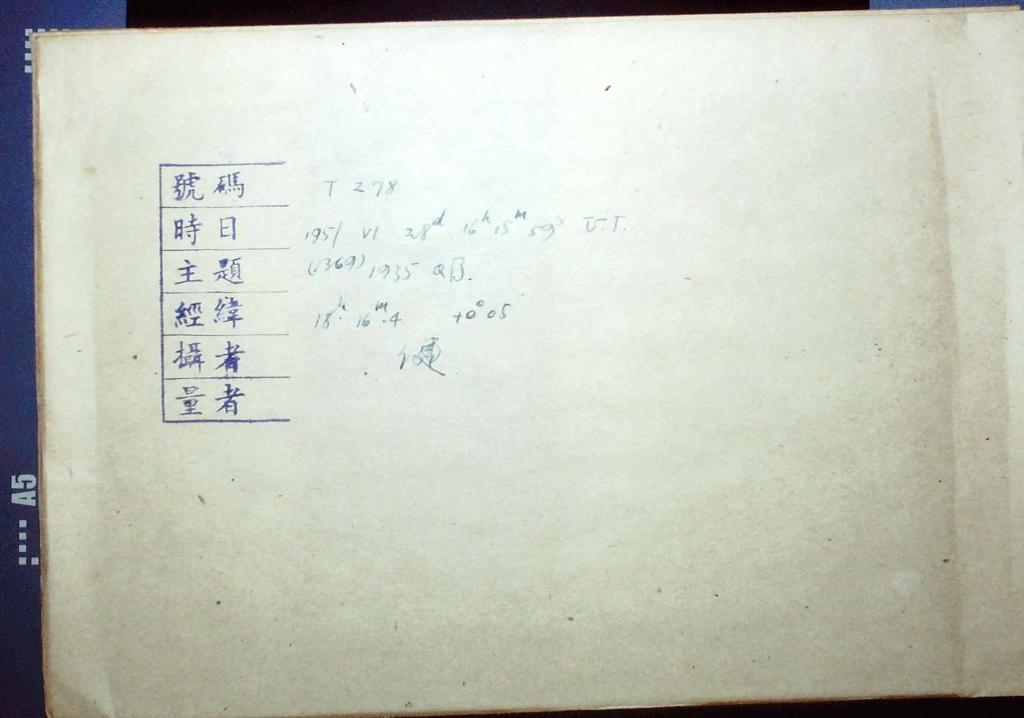 號碼 T 278
時日 1951 VI 28ᵈ 16ʰ 15ᵐ 59ˢ U.T.
主題 (1369) 1935 QB.
經緯 18ʰ. 16ᵐ.4 +0°05
攝者 健
量者
A5